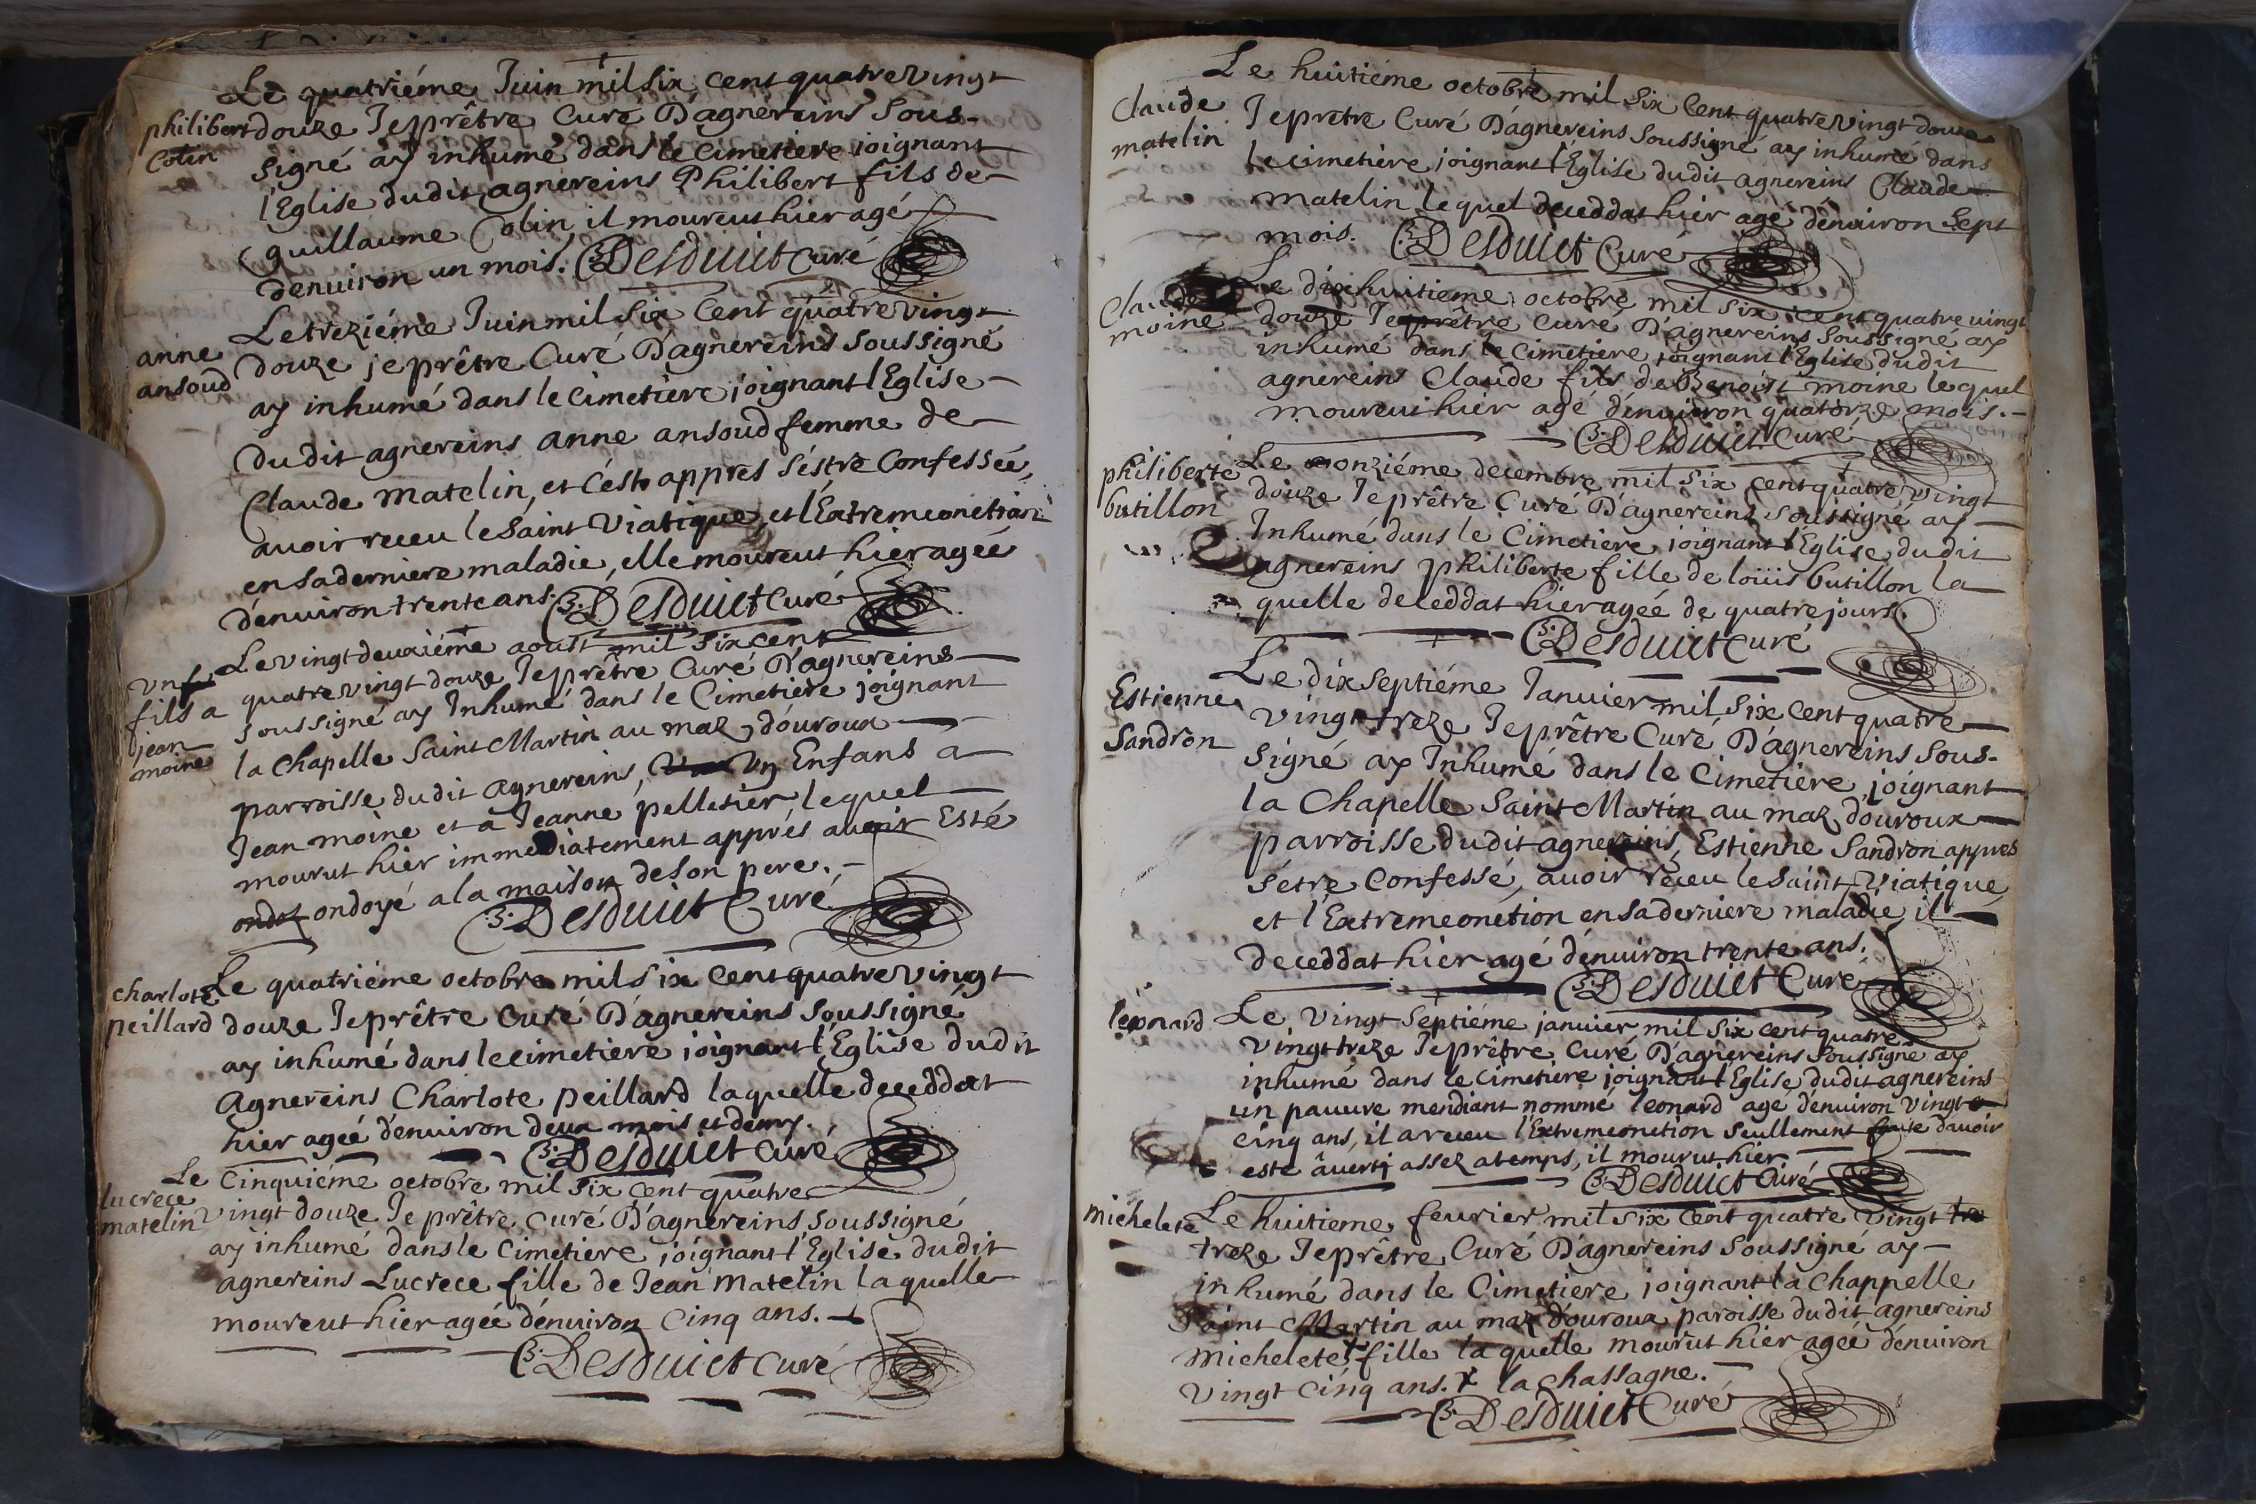 Le quatriéme Juin mil six cent quatre vingt
philibert
Colin
douze Je prêtre Curé D'agnereins Sous-
signé ay inhumé dans le Cimetiere joignant
l'Eglise dudit agnereins Philibert fils de
guillaume Colin il moureut hier agé
d'enuiron un mois. Desduict Curé
Le treziéme Juin mil six cent quatre vingt
anne
ansoud
douze je prêtre Curé D'agnereins Soussigné
ay inhumé dans le Cimetiere joignant l'Eglise
dudit agnereins anne ansoud femme de
Claude Matelin, et c'est appres s'éstre Confesseé,
auoir receu le Saint Viatique, et l'Extremeonction
en sa derniere maladie, elle moureut hier ageé
d'énuiron trente ans. Desduict Curé
Le vingt deuxiéme aoust mil six cent
vn
fils a
jean
moine
quatre vingt douze Je prêtre Curé D'agnereins
Soussigné ay Inhumé dans le Cimetiere joignant
la Chapelle Saint Martin au maz d'ouroux
parroisse dudit agnereins, Vn Enfans a
Jean moine et a Jeanne pelletier lequel
mourut hier immediatement apprés auoir Esté
ondoyé a la maison de son pere.
Desduict Curé
charlote
peillard
Le quatriéme octobre mil six cent quatre vingt
douze Je prêtre Curé D'agnereins Soussigné
ay inhumé dans le cimetiere joignant l'Eglise dudit
Agnereins Charlote peillard laquelle deceddat
hier ageé d'enuiron deux mois et demy.
Desduict Curé
Le Cinquiéme octobre mil six cent quatre
lucrece
matelin
vingt douze Je prêtre Curé D'agnereins Soussigné
ay inhumé dans le Cimetiere joignant l'Eglise dudit
agnereins Lucrece fille de Jean Matelin laquelle
moureut hier ageé d'énuiron Cinq ans.
Desduict Curé
Le huitiéme octobre mil six cent quatre vingt douze
Claude
matelin
Je pretre Curé D'agnereins Soussigné ay inhumé dans
le cimetiere joignant l'Eglise dudit agnereins Claude
Matelin lequel deceddat hier agé d'énuiron Sept
mois. Desduict Curé
Le dixhuitieme octobre mil six cent quatre vingt
Claude
moine
douze Je prêtre Curé D'agnereins Soussigné ay
inhumé dans le Cimetiere joignant l'Eglise dudit
agnereins Claude fils de Benoist moine lequel
moureut hier agé d'énuiron quatorze mois.
Desduict Curé
philiberte
butillon
Le onziéme decembre mil six cent quatre vingt
douze Je prêtre Curé D'agnereins Soussigné ay
Inhumé dans le Cimetiere joignant l'Eglise dudit
agnereins philiberte fille de loüis butillon la
quelle deceddat hier ageé de quatre jours.
Desduict Curé
Le dix septiéme Januier mil six cent quatre
Estienne
Sandron
vingt treze Je prêtre Curé D'agnereins Sous-
signé ay Inhumé dans le Cimetiere joignant
la Chapelle Saint Martin au maz d'ouroux
parroisse dudit agnereins, Estienne Sandron appres
s'étre Confessé, auoir receu le Saint Viatique
et l'Extremeonction en sa derniere maladie il
deceddat hier agé d'énuiron trente ans.
Desduict Curé
léonard
Le vingt Septiéme januier mil six cent quatre
vingt treze Je prêtre Curé D'agnereins Soussigné ay
inhumé dans le Cimetiere joignant l'Eglise dudit agnereins
un pauure mendiant nommé leonard agé d'enuiron vingt
cinq ans, il a receu l'Extremeonction Seullement faute d'auoir
esté âuerti assez a temps, il mourut hier
Desduict Curé
Michelete
Le huitieme feurier mil six cent quatre vingt tre
treze Je prêtre Curé D'agnereins Soussigné ay
inhumé dans le Cimetiere joignant la Chappelle
Saint Martin au maz d'ouroux paroisse dudit agnereins
Michelete fille laquelle mourut hier ageé d'énuiron
vingt cinq ans. la chassagne.
Desduict Curé